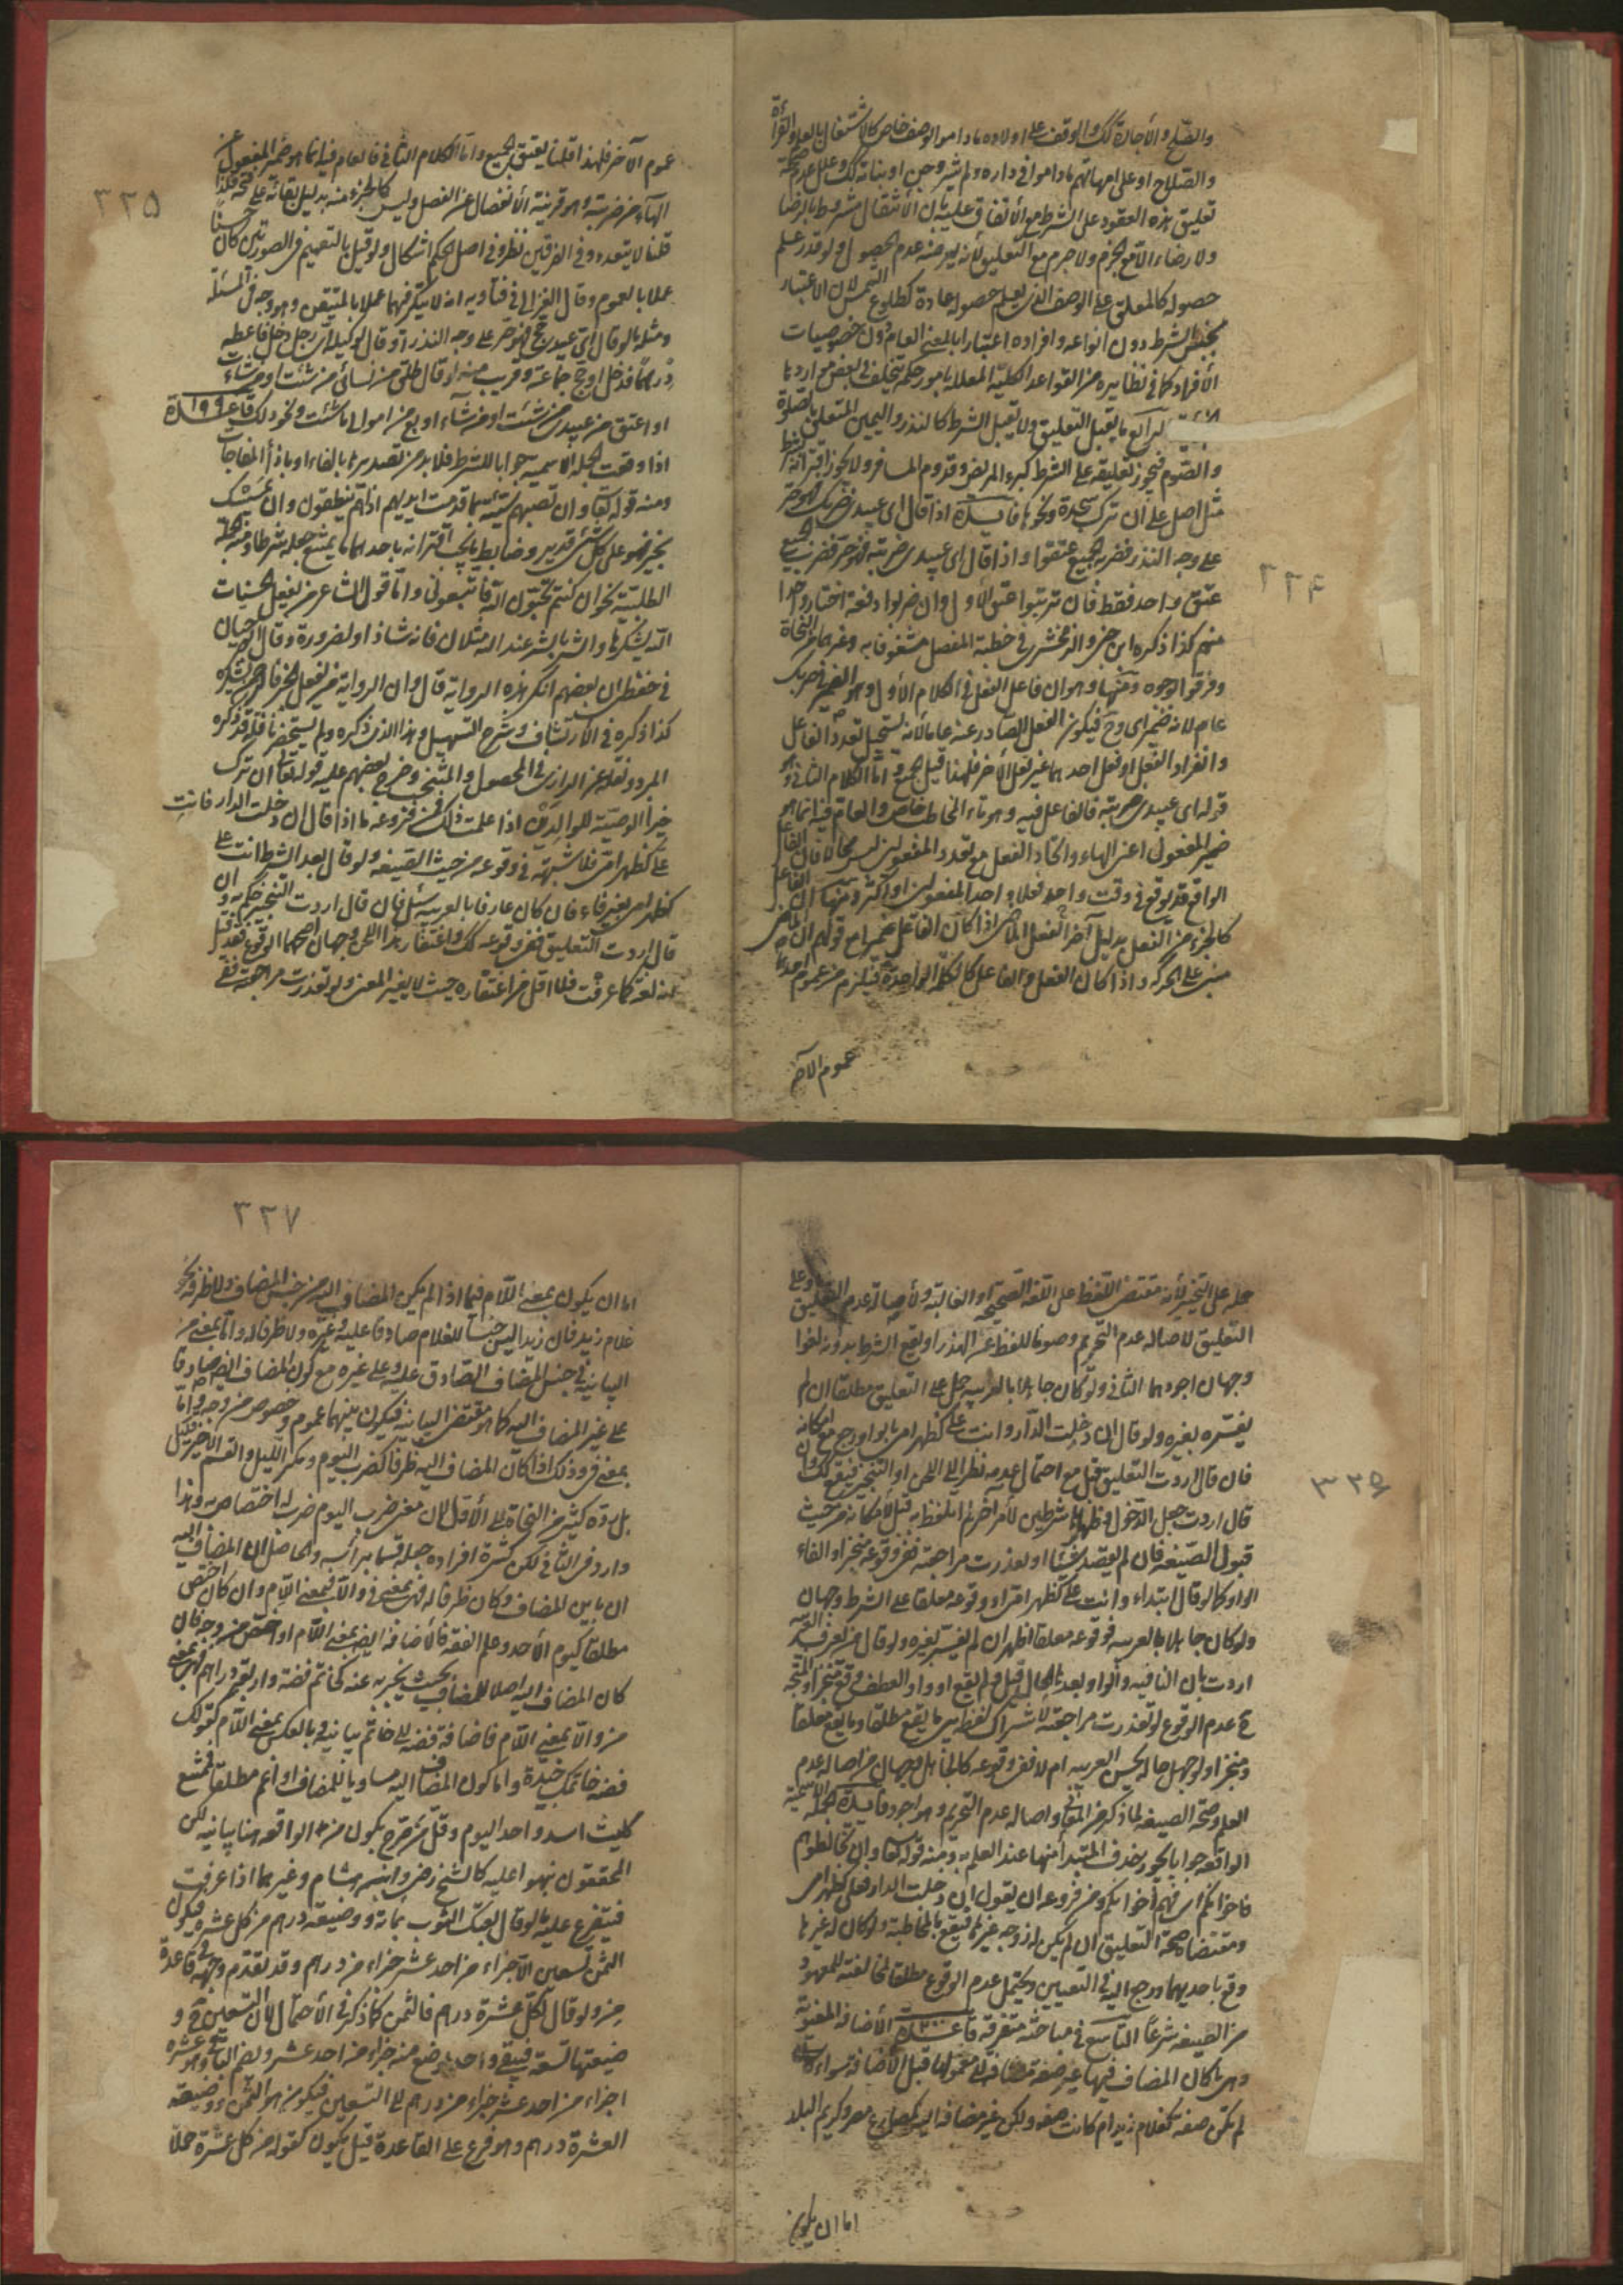 ٣٢٤
والصلح والأجارة كك والوقف على اولاده ما داموا لوصف خاص كالاشتغال بالعلم والقراءة
والصلاح او على امهاتهم ما داموا في داره ولم يتزوجن او بناته كك وعلل عدم صحة
تعليق هذه العقود على الشرط مع الاتفاق عليه بان الأنتقال مشروط بالرضا
ولا رضاء الا مع الجزم ولا جزم مع التعليق لأنه بعرضة عدم الحصول ولو قدر علم
حصوله كالمعلق على الوصف الذى يعلم حصوله عادة كطلوع الشمس لان الاعتبار
بجنس الشرط دون انواعه وافراده اعتبارا بالمعنى العام دون خصوصيات
الأفراد كما في نظايره من القواعد الكلية المعللة بامور حكمية تتخلف في بعض مواردها
الرابع ما يقبل التعليق ولا يقبل الشرط كالنذر واليمين المتعلق بالصلوة
والصوم فيجوز تعليقه على الشرط كبرء المريض وقدوم المسافر ولا يجوز اقترانه بشرط
مثل اصلى على ان نترك سجدة ونحوها فايدة اذا قال اى عبيدى ضربك فهو حر
على وجه النذر فضربه الجميع عتقوا واذا قال اى عبيدى ضربته فهو حر فضرب الجميع
عتق واحد فقط فان ترتبوا عتق الأول وان ضربوا دفعة اختار واحدا
منهم كذا ذكره ابن جني والزمخشرى في خطبة المفصل مشغوفا به وغيرهما من النحاة
وفرقوا بوجوه منها وهو ان فاعل الفعل في الكلام الأول وهو الضمير في ضربك
عام لانه ضمير اى وح فيكون الفعل الصادر عنه عاما لأنه يستحيل تعدد الفاعل
وانفراد الفعل اذ فعل احدهما غير فعل الأخر فلهذا قيل يعم واما الكلام الثاني وهو
قوله اى عبيدى ضربته فالفاعل فيه وهو تاء المخاطب خاص والعام فيه انما هو
ضمير المفعول اعنى الهاء واتحاد الفعل مع تعدد المفعولين ليس محالا فان الفاعل
الواقع قد يوقع في وقت واحد فعلا واحدا بمفعولين او اكثر ومنها ان الفاعل
كالجزء من الفعل بدليل آخر الفعل الماضى اذا كان الفاعل ضميرا مع قولهم ان الماضى
مبنى على الحركة واذا كان الفعل والفاعل كالكلمة الواحدة فيلزم من عموم احدهما
عموم الآخر
٣٢٥
عموم الآخر فلهذا قلنا يعتق الجميع واما الكلام الثاني فالعام فيه انما هو ضمير المفعول عنى
الهاء من ضربته وهو قرينة الأنفصال عن الفصل وليس كالجزء منه بدليل بقائه على فتحه فلذا
قلنا لا يتعدد وفى الفرقين نظر وفي اصل الحكم اشكال ولو قيل بالتعميم في الصورتين كان حسنا
عملا بالعموم وقال الغزالي في فتاويه انه لا يتكرر فيهما عملا بالمتيقن وهو وجه في المسئلة
ومثله ما لو قال اى عبيدى حج فهو حر على وجه النذر او قال لوكيله اى رجل دخل فاعطه
درهما فدخل او حج جماعة وقريب منه لو قال طلق من نسائى من شئت او من شاءت
او اعتق من عبيدى من شئت او من شاء او بع من اموالى ما شئت ونحو ذلك قاعدة ١٩٩
اذا وقعت الجملة الاسمية جوابا للشرط فلا بد من تصديرها بالفاء او باذا المفاجات
ومنه قوله تعالى وان تصبهم سيئة بما قدمت ايديهم اذا هم يقنطون وان يمسسك
بخير فهو على كل شىء قدير وضابط ما يجب اقترانه باحدهما ما يمتنع جعله شرطا ومنه الجملة
الطلبية نحو ان كنتم تحبون الله فاتبعونى واما قول الشاعر من يفعل الحسنات
الله يشكرها والشر بالشر عند الله مثلان فانه شاذ او لضرورة وقال ابو حيان
في حفظى ان بعضهم انكر هذه الرواية قال وان الرواية من يفعل الخير فالرحمن يشكره
كذا ذكره في الارتشاف وشرح التسهيل وهذا الذى ذكره ولم يستحضر ناقله قد ذكره
المبرد ونقله عنه الرازى في المحصول والمنتخب وخرج بعضهم عليه قوله تعالى ان ترك
خيرا الوصية للوالدين اذا علمت ذلك فمن فروعه ما اذا قال ان دخلت الدار فانت
على كظهر امى فلا شبهة في وقوعه من حيث الصيغة ولو قال بعد الشرط انت على
كظهر امى بغير فاء فان كان عارفا بالعربية سئل فان قال اردت التنجيز حكم به وان
قال اردت التعليق ففى وقوعه كك واغتفار هذا اللحن وجهان اصحهما الوقوع فقد قيل
انه لغة كما عرفت فلا اقل من اغتفاره حيث لا يغير المعنى ولو تعذرت مراجعته ففى
٣٢٦
حمله على التنجيز لأنه مقتضى اللفظ على اللغة الصحيحة او الغالبة ولأصالة عدم التعليق او على
التعليق لاصالة عدم التحريم وصونا للفظ عن الهذر او يقع الشرط بدونه لغوا
وجهان اجودهما الثاني ولو كان جاهلا بالعربية حمل على التعليق مطلقا ان لم
يفسره بغيره ولو قال ان دخلت الدار وانت على كظهر امى بالواو رجع اليه مع امكانه
فان قال اردت التعليق قبل مع احتمال عدمه نظرا الى اللحن او التنجيز فيقع كك وان
قال اردت جعل الدخول وظهارها شرطين لأمر اخر ثم لم اتلفظ به قبل لأمكانه من حيث
قبول الصيغة فان لم يقصد شيئا او تعذرت مراجعته ففى وقوعه منجزا والغاء
الواو كما لو قال ابتداء وانت على كظهر امى او وقوعه معلقا على الشرط وجهان
ولو كان جاهلا بالعربية فوقوعه معلقا اظهر ان لم يفسر بغيره ولو قال من يعرف العربية
اردت بان النافية والواو بعدها الحال قبل ولم يقع او واو العطف وقع منجزا والمتجه
ح عدم الوقوع لو تعذرت مراجعته لاشتراك لفظ بين ما يقع مطلقا وما يقع معلقا
ومنجزا ولو جهل حاله ايحسن العربية ام لا ففى وقوعه كالجاهل وجهان من اصالة عدم
العلم وصحة الصيغة لما ذكر من المعانى واصالة عدم التحريم وهو اجود فايدة الجملة الاسمية
الواقعة جوابا يجوز حذف المبتدأ منها عند العلم به ومنه قوله تعالى وان تخالطوهم
فاخوانكم اى فهم اخوانكم ومن فروعه ان يقول ان دخلت الدار فعلى كظهر امى
ومقتضاه صحة التعليق ان لم يكن له زوجة غيرها فيقع بالمخاطبة ولو كان له غيرها
وقع باحديهما ورجع اليه في التعيين ويحتمل عدم الوقوع مطلقا لمخالفته للمعهود
من الصيغة شرعا التاسع في مباحث متفرقة قاعدة ٢٠٠ الأضافة المعنوية
وهى ما كان المضاف فيها غير صفة مضافة الى معمولها قبل الأضافة سواء
لم تكن صفة كغلام زيد ام كانت صفة ولكن غير مضافة اليه كمصارع مصر وكريم البلد
اما ان يكون
٣٢٧
اما ان يكون بمعنى اللام فيما اذا لم يكن المضاف اليه من جنس المضاف ولا ظرفه نحو
غلام زيد فان زيدا ليس جنسا للغلام صادقا عليه وغيره ولا ظرفا له واما بمعنى من
البيانية في جنس المضاف الصادق عليه وعلى غيره مع كون المضاف ايضا صادقا
على غير المضاف اليه كما هو مقتضى البيانية فيكون بينهما عموم وخصوص من وجه واما
بمعنى في وذلك اذا كان المضاف اليه ظرفا كضرب اليوم ومكر الليل والقسم الاخير قليل
بل رده كثير من النحاة الى الأول لان معنى ضرب اليوم ضرب له اختصاص به وهذا
وارد في الثاني لكن كثرة افراده جعله قسما برأسه والحاصل ان المضاف اليه
ان باين المضاف وكان ظرفا له فهى بمعنى في والا فبمعنى اللام وان كان اخص
مطلقا كيوم الأحد وعلم الفقه فالأضافة ايضا بمعنى اللام او اخص من وجه فان
كان المضاف اليه اصلا للمضاف بحيث يخبر به عنه كخاتم فضة واربعة دراهم فهى بمعنى
من والا بمعنى اللام فاضافة فضة الى خاتم بيانية وبالعكس بمعنى اللام كقولك
فضة خاتمك جيدة واما كون المضاف اليه مساويا للمضاف او اعم مطلقا فممتنع
كليث اسد واحد اليوم وقل من صرح بكون من الواقعة هنا بيانية لكن
المحققون نبهوا عليه كالشيخ رضى وابن هشام وغيرهما اذا عرفت
فيتفرع عليه ما لو قال بعتك الثوب بمائة ووضيعة درهم من كل عشرة فيكون
الثمن تسعين الا جزاء من احد عشر جزاء من درهم وقد تقدم وجهه في قاعدة
من ولو قال لكل عشرة درهم فالثمن كما ذكر في الأحتمال لان التسعين و
ضيعتها تسعة فيبقى واحد يوضع منه جزاء من احد عشر ويضم الباقى وهو عشرة
اجزاء من احد عشر جزاء من درهم الى التسعين فيكون هو الثمن ووضيعة
العشرة درهم وهو فرع على القاعدة قيل يكون كقوله من كل عشرة حملا